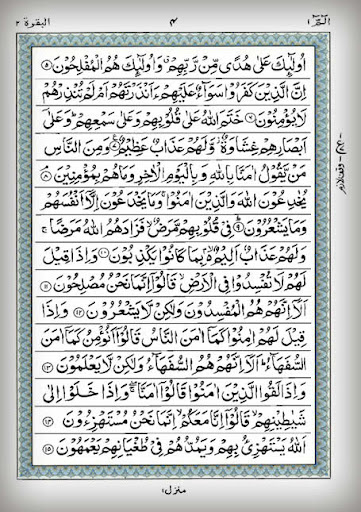 البقرة ٢
٤
الٓمّٓ ١
اُولٰٓئِكَ عَلٰى هُدًى مِّنْ رَّبِّهِمْ وَاُولٰٓئِكَ هُمُ الْمُفْلِحُوْنَ ٥
اِنَّ الَّذِيْنَ كَفَرُوْا سَوَآءٌ عَلَيْهِمْ ءَاَنْذَرْتَهُمْ اَمْ لَمْ تُنْذِرْهُمْ
لَا يُؤْمِنُوْنَ ٦ خَتَمَ اللّٰهُ عَلٰى قُلُوْبِهِمْ وَعَلٰى سَمْعِهِمْ وَعَلٰٓى
اَبْصَارِهِمْ غِشَاوَةٌ وَّلَهُمْ عَذَابٌ عَظِيْمٌ ٧ وَمِنَ النَّاسِ
مَنْ يَّقُوْلُ اٰمَنَّا بِاللّٰهِ وَبِالْيَوْمِ الْاٰخِرِ وَمَا هُمْ بِمُؤْمِنِيْنَ ٨
يُخٰدِعُوْنَ اللّٰهَ وَالَّذِيْنَ اٰمَنُوْا وَمَا يَخْدَعُوْنَ اِلَّآ اَنْفُسَهُمْ
وَمَا يَشْعُرُوْنَ ٩ فِيْ قُلُوْبِهِمْ مَّرَضٌ فَزَادَهُمُ اللّٰهُ مَرَضًا
وَلَهُمْ عَذَابٌ اَلِيْمٌ بِمَا كَانُوْا يَكْذِبُوْنَ ١٠ وَاِذَا قِيْلَ
لَهُمْ لَا تُفْسِدُوْا فِي الْاَرْضِ قَالُوْٓا اِنَّمَا نَحْنُ مُصْلِحُوْنَ ١١
اَلَآ اِنَّهُمْ هُمُ الْمُفْسِدُوْنَ وَلٰكِنْ لَّا يَشْعُرُوْنَ ١٢ وَاِذَا
قِيْلَ لَهُمْ اٰمِنُوْا كَمَآ اٰمَنَ النَّاسُ قَالُوْٓا اَنُؤْمِنُ كَمَآ اٰمَنَ
السُّفَهَآءُ اَلَآ اِنَّهُمْ هُمُ السُّفَهَآءُ وَلٰكِنْ لَّا يَعْلَمُوْنَ ١٣
وَاِذَا لَقُوا الَّذِيْنَ اٰمَنُوْا قَالُوْٓا اٰمَنَّا وَاِذَا خَلَوْا اِلٰى
شَيٰطِيْنِهِمْ قَالُوْٓا اِنَّا مَعَكُمْ اِنَّمَا نَحْنُ مُسْتَهْزِءُوْنَ ١٤
اَللّٰهُ يَسْتَهْزِئُ بِهِمْ وَيَمُدُّهُمْ فِيْ طُغْيَانِهِمْ يَعْمَهُوْنَ ١٥
منزل ١